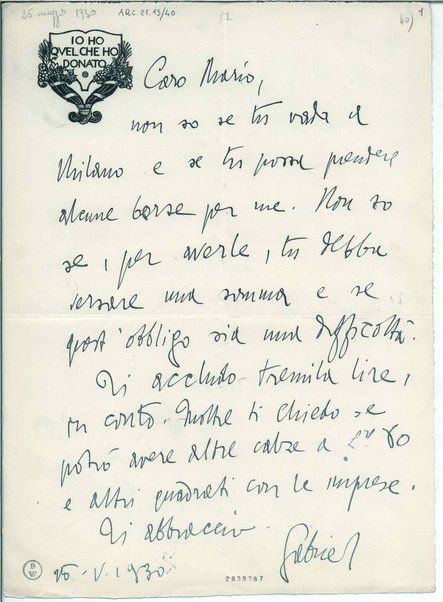 25 maggio 1930 ARC.21.13/40 52 40) 1
IO HO
QUEL CHE HO
DONATO
Caro Mario,
non so se tu vada a
Milano e se tu possa prendere
alcune borse per me. Non so
se, per averle, tu debba
versare una somma e se
quest'obbligo sia una difficoltà.
Ti accludo tremila lire,
in conto. Inoltre ti chiedo se
potrò avere altre calze a
e altri quadrati con le imprese.
Ti abbraccio.
Gabriel
25.V.1930
2839787